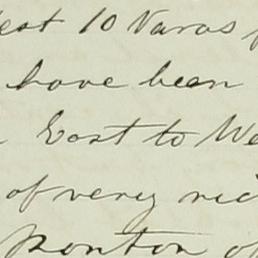 est 10 Varas
have been
East to We
of very ric
Ponton of